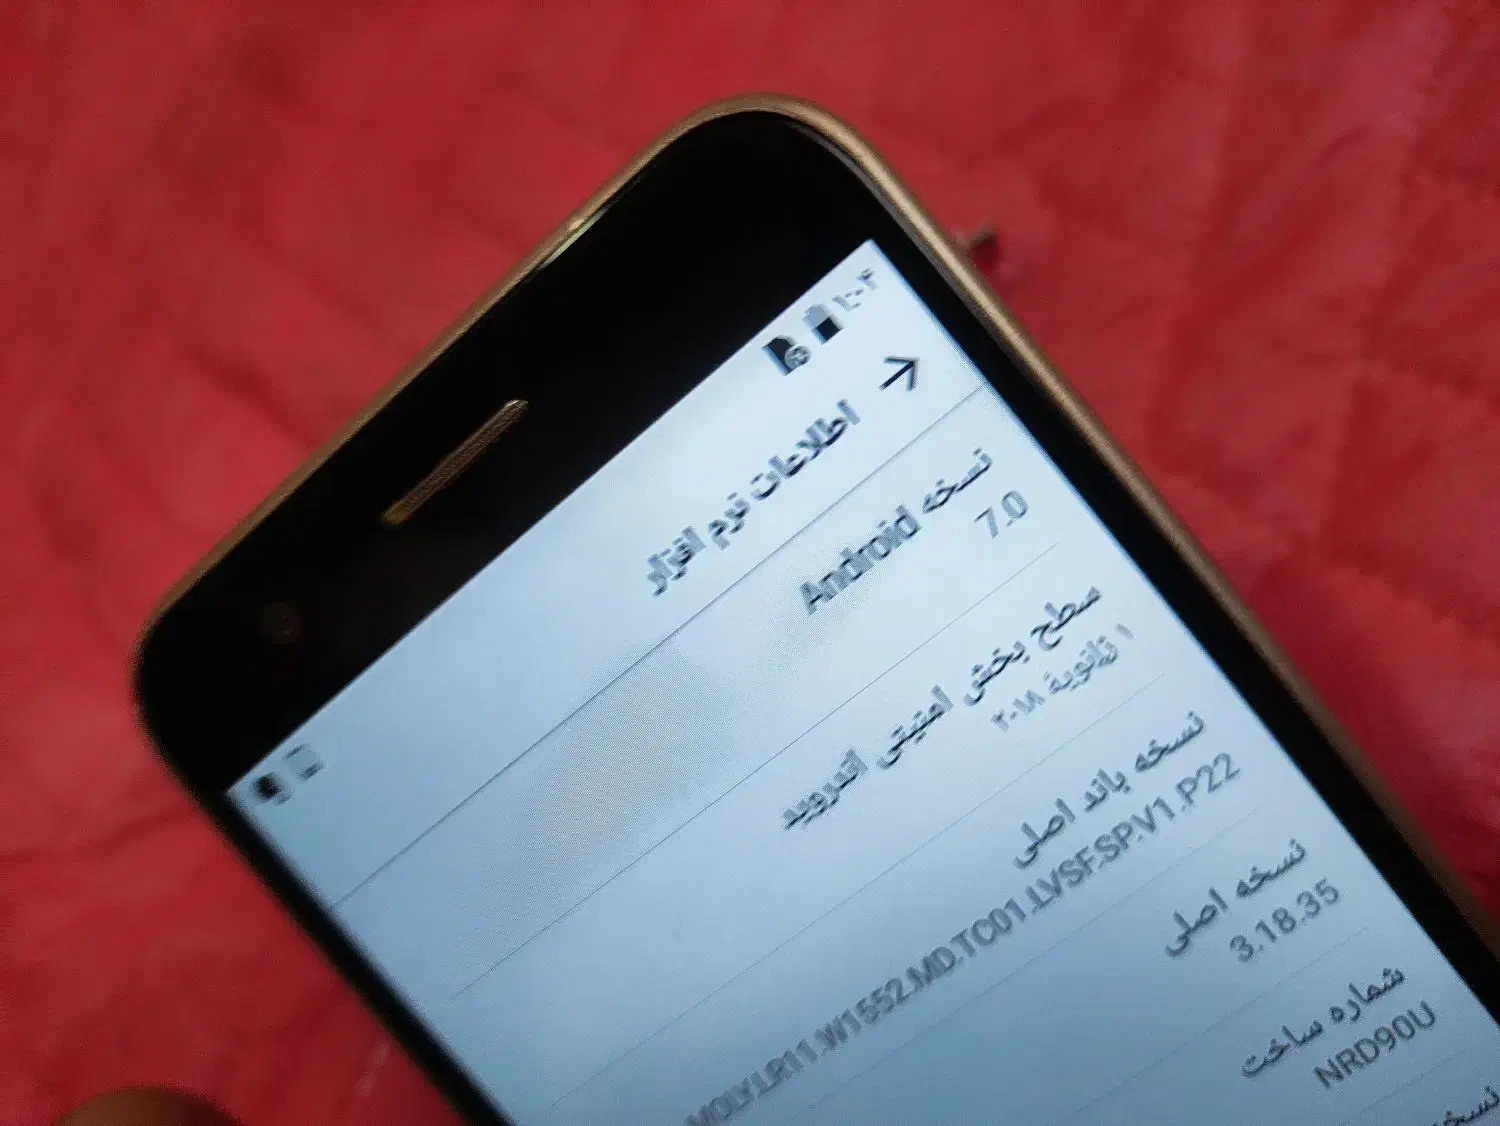 ۱:۰۴
اطلاعات نرم افزار
نسخه Android
7.0
سطح بخش امنیتی اندروید
۱ ژانویهٔ ۲۰۱۸
نسخه باند اصلی
MOLY.LR11.W1552.MD.TC01.LVSF.SP.V1.P22
نسخه اصلی
3.18.35
شماره ساخت
NRD90U
نسخه